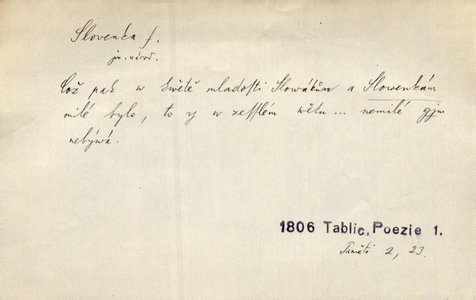 Slovenka f.
jm. národ.
Což pak w kwětě mladosti Slowákům a Slowenkám
milé bylo, to y w zesslém wěku ... nemilé gim
nebývá.
1806 Tablic, Poezie 1.
Paměti 2, 23.